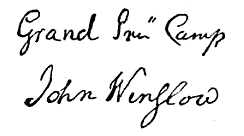 Grand Preˮ Camp
John Winslow